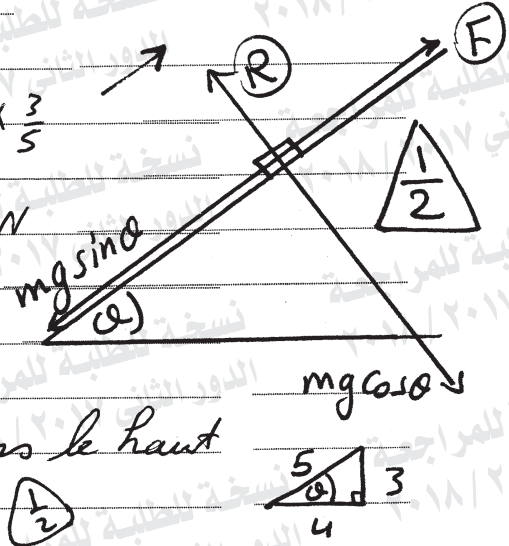 F
R
× 3/5
N
1/2
mg sin θ
θ
mg cos θ
vers le haut
1/2
5
3
θ
4
نسخة للطلبة للمراجعة
الدور الثاني ٢٠١٧ / ٢٠١٨